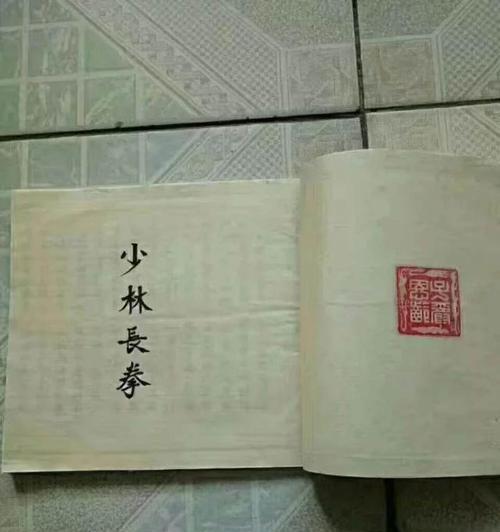 少林長拳